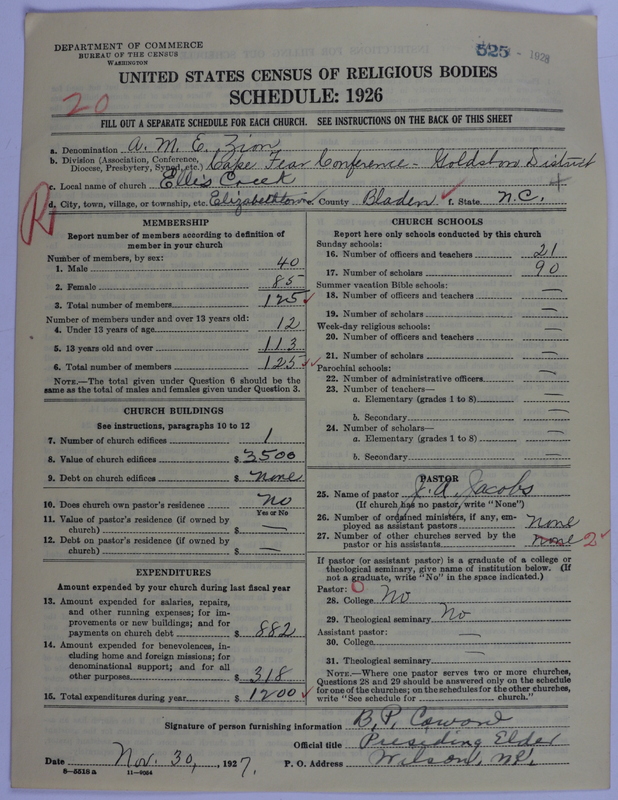 DEPARTMENT OF COMMERCE
BUREAU OF THE CENSUS
WASHINGTON
525 - 1928
UNITED STATES CENSUS OF RELIGIOUS BODIES
SCHEDULE: 1926
20
FILL OUT A SEPARATE SCHEDULE FOR EACH CHURCH. SEE INSTRUCTIONS ON THE BACK OF THIS SHEET
a. Denomination A. M. E. Zion
b. Division (Association, Conference, Diocese, Presbytery, Synod, etc.) Cape Fear Conference - Goldston District
c. Local name of church Ellis Creek
d. City, town, village, or township, etc. Elizabethtown County Bladen f. State N.C.
R
MEMBERSHIP
Report number of members according to definition of
member in your church
Number of members, by sex:
1. Male 40
2. Female 85
3. Total number of members 125
Number of members under and over 13 years old:
4. Under 13 years of age 12
5. 13 years old and over 113
6. Total number of members 125
NOTE.—The total given under Question 6 should be
same as the total of males and females given under Question 3.
CHURCH BUILDINGS
See instructions, paragraphs 10 to 12
7. Number of church edifices 1
8. Value of church edifices $ 3500
9. Debt on church edifices $ none
10. Does church own pastor's residence no
Yes or No
11. Value of pastor's residence (if owned by
church) $ —
12. Debt on pastor's residence (if owned by
church) $ —
EXPENDITURES
Amount expended by your church during last fiscal year
13. Amount expended for salaries, repairs,
and other running expenses; for im-
provements or new buildings; and for
payments on church debt $ 882
14. Amount expended for benevolences, in-
cluding home and foreign missions; for
denominational support; and for all
other purposes $ 318
15. Total expenditures during year $ 1200
CHURCH SCHOOLS
Report here only schools conducted by this church
Sunday schools:
16. Number of officers and teachers 21
17. Number of scholars 90
Summer vacation Bible schools:
18. Number of officers and teachers —
19. Number of scholars —
Week-day religious schools:
20. Number of officers and teachers —
21. Number of scholars —
Parochial schools:
22. Number of administrative officers —
23. Number of teachers—
a. Elementary (grades 1 to 8) —
b. Secondary —
24. Number of scholars—
a. Elementary (grades 1 to 8) —
b. Secondary —
PASTOR
25. Name of pastor J. A. Jacobs
(If church has no pastor, write "None")
26. Number of ordained ministers, if any, em-
ployed as assistant pastors none
27. Number of other churches served by the
pastor or his assistants none 2
If pastor (or assistant pastor) is a graduate of a college or
theological seminary, give name of institution below. (If
not a graduate, write "No" in the space indicated.)
Pastor: 0
28. College No
29. Theological seminary No
Assistant pastor:
30. College —
31. Theological seminary —
NOTE.—Where one pastor serves two or more churches,
Questions 28 and 29 should be answered only on the schedule
for one of the churches; on the schedules for the other churches,
write "See schedule for church."
Signature of person furnishing information B. P. Coward
Official title Presiding Elder
Date Nov. 30, 1927. P. O. Address Wilson, N.C.
8-5518 a 11-9064